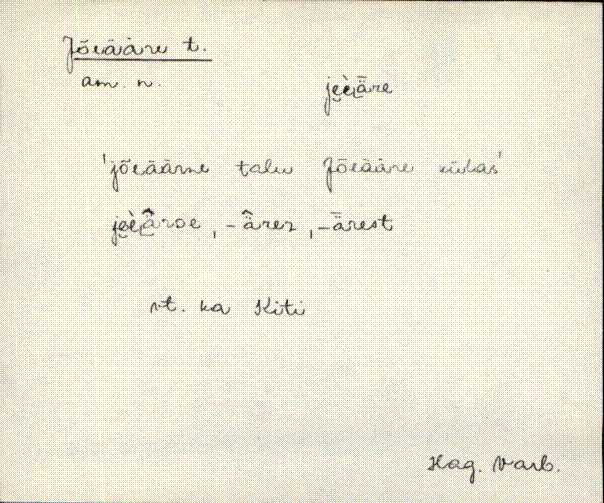 Jõeääre t.
am. n.
je̮è̮i̮ǟre
'jõeäärne talu Jõeääre külas'
je̮è̮i̮ä̂rse, -ä̂rez, -ǟrest
vt. ka Kiti
Hag. Varb.